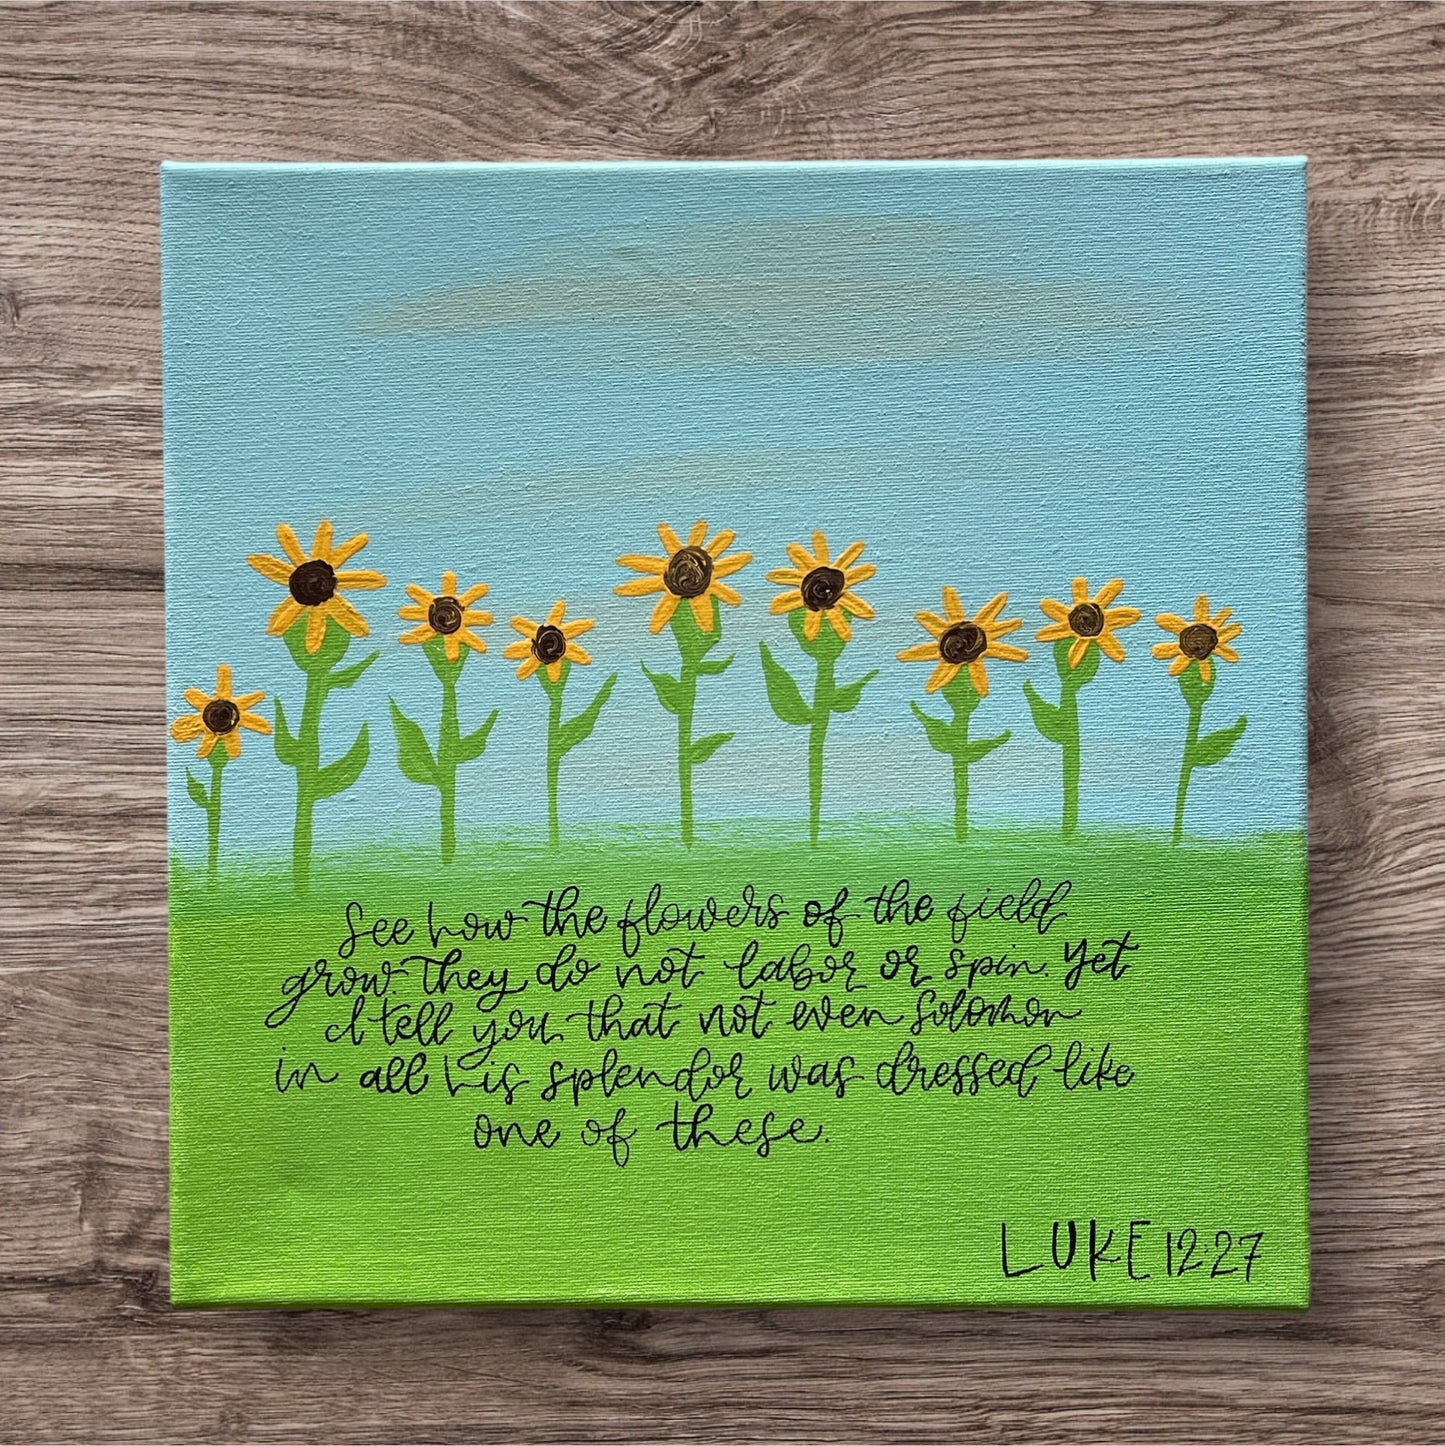 See how the flowers of the field
grow. They do not labor or spin. Yet
I tell you, that not even Solomon
in all his splendor was dressed like
one of these.
LUKE 12:27